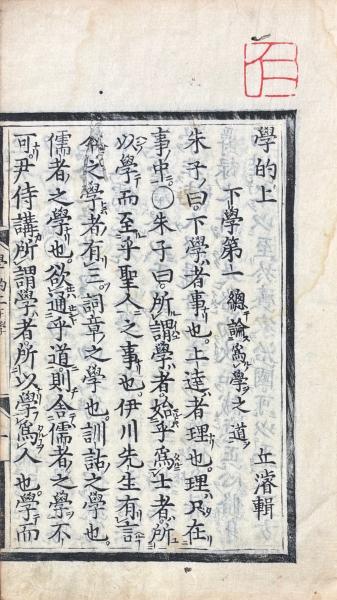 學的上
丘濬輯
下學第一 總論爲學之道
朱子曰下學者事也上達者理也理只在
事中○朱子曰所謂學者始乎爲士者所
以學而至乎聖人之事也伊川先生有言
今之學者有三詞章之學也訓詁之學也
儒者之學也欲通乎道則舍儒者之學不
可尹侍講所謂學者所以學爲人也學而